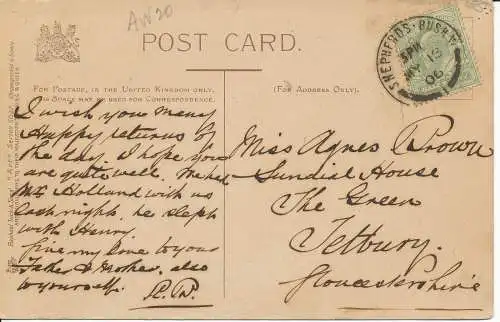 AW20
POST CARD.
FOR POSTAGE, IN THE UNITED KINGDOM ONLY,
SPACE MAY BE USED FOR CORRESPONDENCE.
(FOR ADDRESS ONLY.)
SHEPHERDS. BUSH.
5PM
MY 13
06
I wish you many
Happy returns of
the day. I hope you
are quite well. We had
Mr Holland with us
last night, he slept
with Henry.
Give my love to your
Father & Mother, also
to yourself.
Miss Agnes Brown
Sundial House
The Green
Tetbury.
Gloucestershire